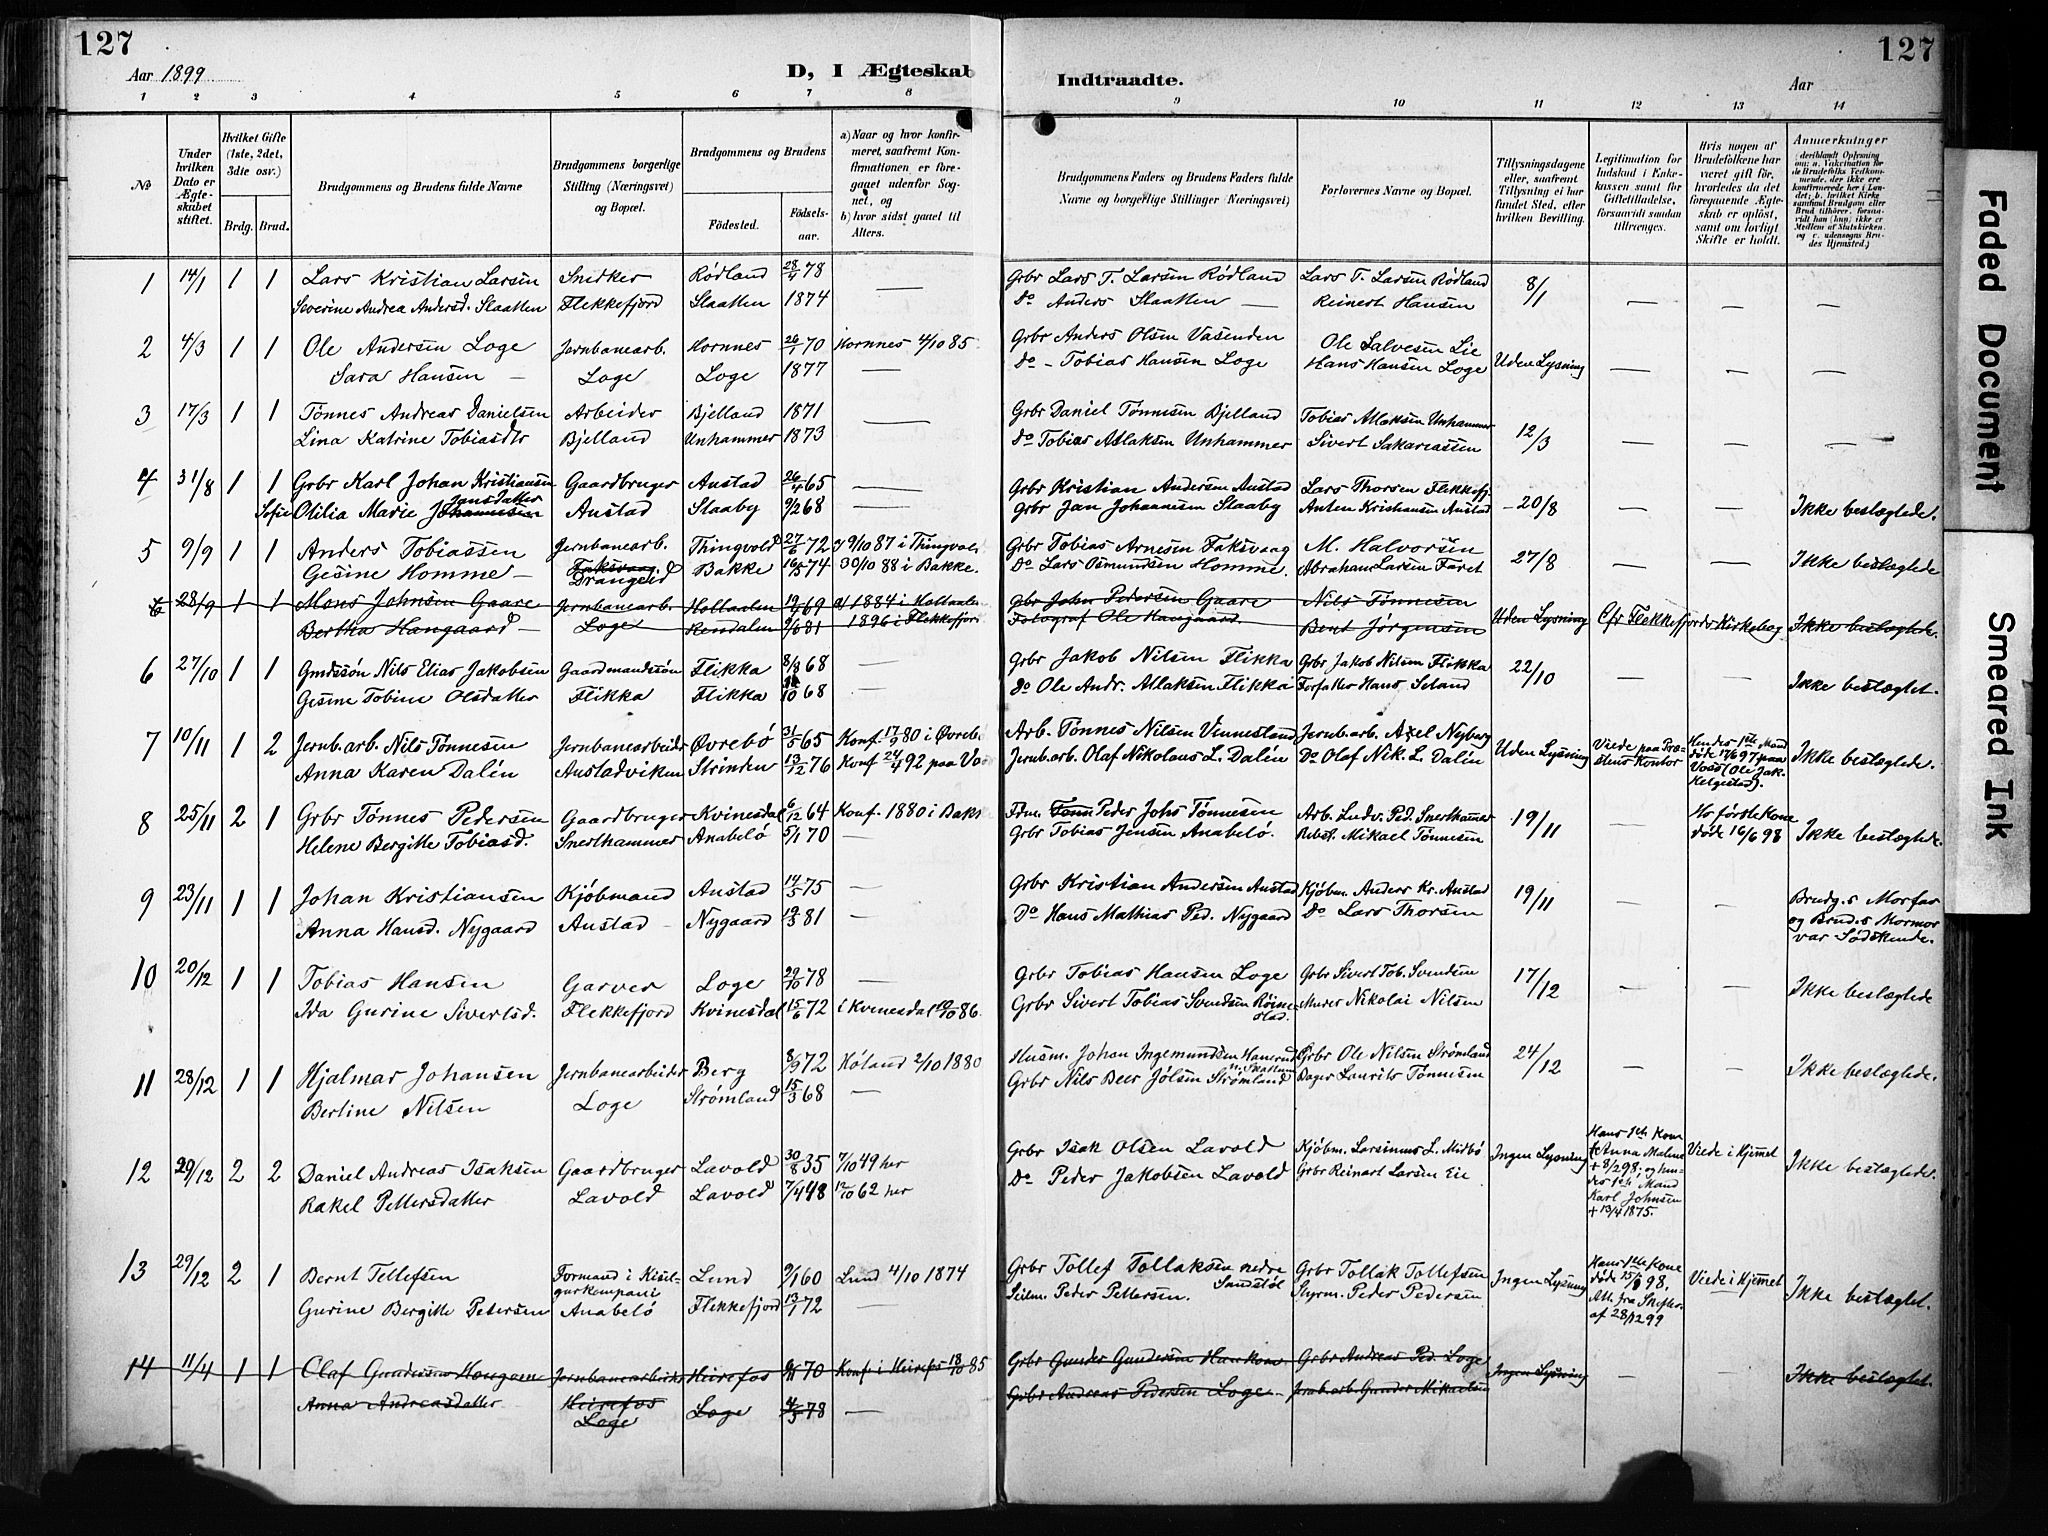 127
Aar 1899
D, I Ægteskab
Indtraadte.
Aar
127
1 2 3 4 5 6 7 8 9 10 11 12 13 14
No
Under hvilken Dato er Ægteskabet stiftet.
Hvilket Gifte (1ste, 2det, 3die osv.)
Brdg. Brud.
Brudgommens og Brudens fulde Navne
Brudgommens borgerlige Stilling (Næringsvei) og Bopæl.
Brudgommens og Brudens
Fødested. Fødselsaar.
a) Naar og hvor konfirmeret, saafremt Konfirmationen er foregaaet udenfor Sognet, og
b) hvor sidst gaaet til Alters.
Brudgommens Faders og Brudens Faders fulde Navne og borgerlige Stillinger (Næringsvei)
Forlovernes Navne og Bopæl.
Tillysningsdagene eller, saafremt Tillysning ei har fundet Sted, efter hvilken Bevilling.
Legitimation for Indskud i Enkekassen samt for Giftetilladelse, forsaavidt saadan tiltrænges.
Hvis nogen af Brudefolkene har været gift før, hvorledes da det foregaaende Ægteskab er opløst, samt om lovligt Skifte er holdt.
Anmærkninger
(deriblandt Oplysning om: a. Vakcination for de Brudefolks Vedkommende, der ikke ere konfirmerede her i Landet; b. hvilket Kirkesamfund Brudgom eller Brud tilhører, forsaavidt han (hun) ikke er Medlem af Statskirken, og c. udensogns Brudes Hjemsted.)
1 14/1 1 1 Lars Kristian Larsen Snedker Rødland 28/4 78 — Grbr Lars T. Larsen Rødland Lars T. Larsen Rødland 8/1 — — —
Severine Andrea Andersd. Slaatten Flekkefjord Slaatten 1874 Do Anders Slaatten — Reinert Hansen
2 4/3 1 1 Ole Andersen Loge Jernbanearb. Hornnes 26/1 70 Hornnes 4/10 85 Grbr Anders Olsen Vasenden Ole Salvesen Lie Uden Lysning — — —
Sara Hansen — Loge Loge 1877 — Do - Tobias Hansen Loge Hans Hansen Loge
3 17/3 1 1 Tønnes Andreas Danielsen Arbeider Bjelland 1871 — Grbr Daniel Tønnesen Bjelland Tobias Atlaksen Unhammer 12/3 — — —
Lina Katrine Tobiasdtr Bjelland Unhammer 1873 Do Tobias Atlaksen Unhammer Sivert Sakariassen
4 31/8 1 1 Grbr Karl Johan Kristiansen Gaardbruger Austad 26/4 65 — Grbr Kristian Andersen Austad Lars Thorsen Flekkefj. 20/8 — — Ikke beslægtede.
Sofie Otilia Marie Johannesen Jansdatter Austad Slaaby 9/2 68 — Grbr Jan Johannesen Slaaby Anten Kristiansen Austad
5 9/9 1 1 Anders Tobiassen Jernbanearb. Thingvold 27/6 72 9/10 87 i Thingvold Grbr Tobias Arnesen Faksvaag M. Halvorsen 27/8 — — Ikke beslægtede
Gesine Homme — Faksvaag Drangeid Bakke 74 30/10 88 i Bakke. Do Lars Osmundsen Homme. Abraham Larsen Føret
6 28/9 1 1 Mons Johnsen Gaare Jernbanearb. Holtaalen 19/4 69 a) 1884 i Holtaalen Grbr John Pedersen Gaare Nils Tønnesen Uden Lysning Cfr Flekkefjords Kirkebog Ikke beslægtede.
Bertha Haugaard — Loge Rendalen 81 1896 i Flekkefjord Fotograf Ole Haugaard Bent Jørgensen
6 27/10 1 1 Gmdssøn Nils Elias Jakobsen Gaardmandssøn Flikka 8/8 68 — Grbr Jakob Nilsen Flikka Grbr Jakob Nilsen Flikka 22/10 — — Ikke beslægtet.
Gesine Tobine Olsdatter Flikka Flikka 68 — Do Ole Andr. Atlaksen Flikka Forfatter Hans Seland
7 10/11 1 2 Jernb.arb. Nils Tønnesen Jernbanearbeider Øvrebø 31/5 65 Konf. 17/9 80 i Øvreb. Arb. Tønnes Nilsen Vennesland Jernb.arb. Axel Nyberg Uden Lysning Viede paa Præstens Kontor Hendes 1ste Mand døde 17/6 97 paa Voss (Ole Jak. Helgestad). Ikke beslægtede.
Anna Karen Dalén Austadviken Strinden 13/12 76 Konf 24/4 92 paa Vo Jernb.arb. Olaf Nikolaus L. Dalén Do Olaf Nik. L. Dalén
8 25/11 2 1 Grbr Tønnes Pedersen Gaardbruger Kvinesdal 6/12 64 Konf. 1880 i Bakk Fdm. Peder Johs Tønnesen Arb. Ludv. Ped. Snerthammer 19/11 — Hs første Kone døde 16/6 98 Ikke beslægtede.
Helene Bergitte Tobiasd. Snerthammer Anabelø 5/1 70 — Grbr Tobias Jensen Anabelø. Rebsl. Mikael Tønnesen
9 23/11 1 1 Johan Kristiansen Kjøbmand Austad 14/5 75 — Grbr Kristian Andersen Austad Kjøbm. Anders Kr. Austad 19/11 — — Brudg.s Morfar og Brud.s Mormor var Sødskende.
Anna Hansd. Nygaard Austad Nygaard 19/3 81 — Do Hans Mathias Ped. Nygaard Do Lars Thorsen
10 20/12 1 1 Tobias Hansen Garver Loge 29/10 78 — Grbr Tobias Hansen Loge Grbr Sivert Tob. Svendsen 17/12 — — Ikke beslægtede
Ida Gurine Sivertsd. Flekkefjord Kvinesdal 15/6 72 i Kvinesdal 10/10 86. Grbr Sivert Tobias Svendsen Røinestad. Murer Nikolai Nilsen
11 28/12 1 1 Hjalmar Johansen Jernbanearbeider Berg 8/9 72 Høland 2/10 1880 Husm. Johan Ingemundsen Grbr Ole Nilsen Strømland 24/12 — — Ikke beslægtede.
Bertine Nilsen Loge Strømland 15/3 68 — Grbr Nils Beer Jølsen Strømland Bager Laurits Tønnesen
12 29/12 2 2 Daniel Andreas Isaksen Gaardbruger Lavold 30/8 35 7/10 49 her Grbr Isak Olsen Lavold Kjøbm. Larsinus L. Midbø Ingen Lysning Hans 1ste Kone Anna Malene + 8/2 98; og hendes 1ste Mand Karl Johnsen + 13/4 1875. Viede i Hjemmet Ikke beslægtede.
Rakel Pettersdatter Lavold Lavold 7/4 48 12/10 62 her Do Peder Jakobsen Lavold Grbr Reinart Larsen Eie
13 29/12 2 1 Bernt Tellefsen Formand i Kiselgurkompani Lund 9/1 60 Lund 4/10 1874 Grbr Tollef Tollaksen nedre Sandstøl Grbr Tollak Tollefsen Ingen Lysning Hans 1ste Kone døde 98, Att. fra Skifter. af 28/12 99 Viede i Hjemmet Ikke beslægtet.
Gurine Bergitte Petersen Anabelø Flekkefjord 13/1 72 — Seilm. Peder Pettersen. Styrm. Peder Pedersen
14 11/4 1 1 Olaf Gundersen Haugom Jernbanearbeider Heirefos 70 Konf. i Heirefos 18/10 85 Grbr Gunder Gundersen Haukom Grbr Andreas Ped. Loge Ingen Lysning — — Ikke beslægtet.
Anna Andreasdatter Heirefos Loge Loge 4/3 78 — Grbr Andreas Pedersen Loge Jernb.arb. Gunder Mikaelsen
Faded Document
Smeared Ink